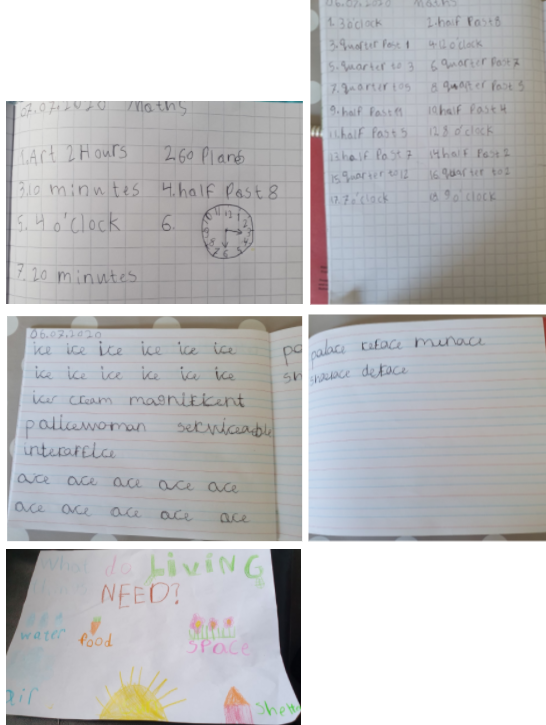 07.07.2020 Maths
1. Art 2 Hours 2. 60 Plans
3. 10 minutes 4. half Past 8
5. 4 o'clock 6.
12 1 2 3 4 5 6 7 8 9 10 11
7. 20 minutes
06.07.2020 Maths
1. 3 o'clock 2. half Past 8
3. quarter Past 1 4. 12 o'clock
5. quarter to 3 6. quarter Past 2
7. quarter to 5 8. quarter Past 5
9. half Past 11 10. half Past 4
11. half Past 5 12. 8 o'clock
13. half Past 7 14. half Past 2
15. quarter to 12 16. quarter to 2
17. 7 o'clock 18. 9 o'clock
06.07.2020
ice ice ice ice ice ice
ice ice ice ice ice ice
ice cream magnificent
policewoman serviceable
interaffice
ace ace ace ace ace
ace ace ace ace ace
pa
sh
palace reface menace
deface
What do LiViNG
NEED?
water food SPACE
air